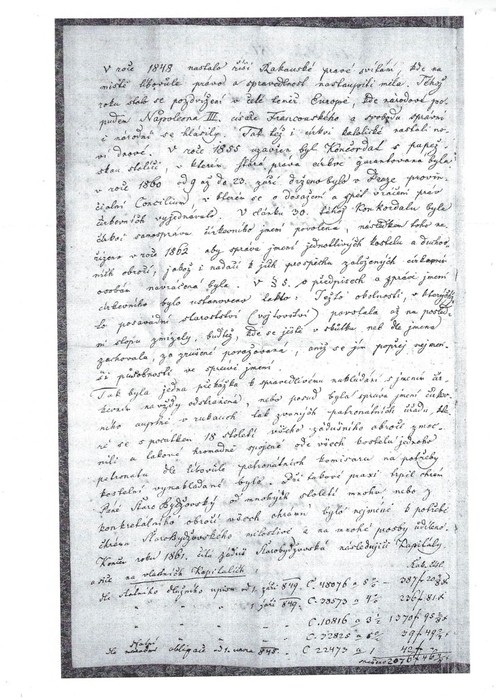 V roce 1848 nastalo říši Rakouské pravé svítání, kde na
místo libovůle právo a spravedlnost nastoupiti měla. Téhož
roku stalo se pozdvižení v celé téměř Europě, kde národové po
puzen Napoleona III, císaře Francouského a svobodu správu
národní se hlásily. Tak též i církvi katolické nastali no
vi dnové. V roce 1855 uzavřen byl Konkordat s papež
skou stolicí, v kterém práva církve garantovana byla
v roce 1860 od 9 až do 23. září drženo bylo v Praze provin
cialní Concilium, v kterém se o dosažení a zpět vrácení práv
církevních vyjednávalo. V článku 30. téhož Konkordatu byla
církvi samospráva církevního jmění povolena, následkem toho na
řízeno v roce 1862 aby správa jmění jednotlivých kostelu a duchov
ních obročí, jakož i nadací k jich prospěchu založených církevním
osobám navrácena byla. V § 5. o předpisech a správě jmění
církevního bylo ustanoveno takto: Tejto okolnosti, v kterýchž
to posavadní starostové (vojtovství) povstala až na posled
ní stopu zmizely, budtež, kde se ještě v skutku neb dle jména
zachovala, za zrušené považovaná, aniž se jim popřej nejmen
ší působnosti ve správě jmění.
Tak byla jedna překážka k spravedlivému nakládání s jmením cír
kevním navždy odstraněna, nebo posud byla správa jmění církev
ního úplně v rukouch tak zvaných patronátních úřadu, kte
ré se s počátkem 18 století všeho zádušního obročí zmoc
nili a takové hromadně spojené ode všech kostelu jednoho
patronatu dle libovůle patronátních komisaru na potřeby
kostelní vynakládané bylo. Dle takové praxi trpěl chrám
Páně Staro Bydžovský od mnohých století mnoho nebo z
konkretálního obročí všech chrámu bylo nejméně k potřebě
chrámu StaroBydžovského milostivě a na mnohé prosby uděleno.
Koncem roku 1861. čítá záduší Starobydžovské následující Kapitály.
a síce na vlastních Kapitálích:
dle Antonína úpisu od 1. září 849. C. 48076 a 5% – 387 f 20
" " " září 849. C. 73573 a 4% 236 f 81
" " " C. 10816 a 3½ 1370 f 95
" " " C. 72825 a 5% 39 f 49
obligací od 1. unora 848. – C. 22473 a 1 42 f
2076 f 46